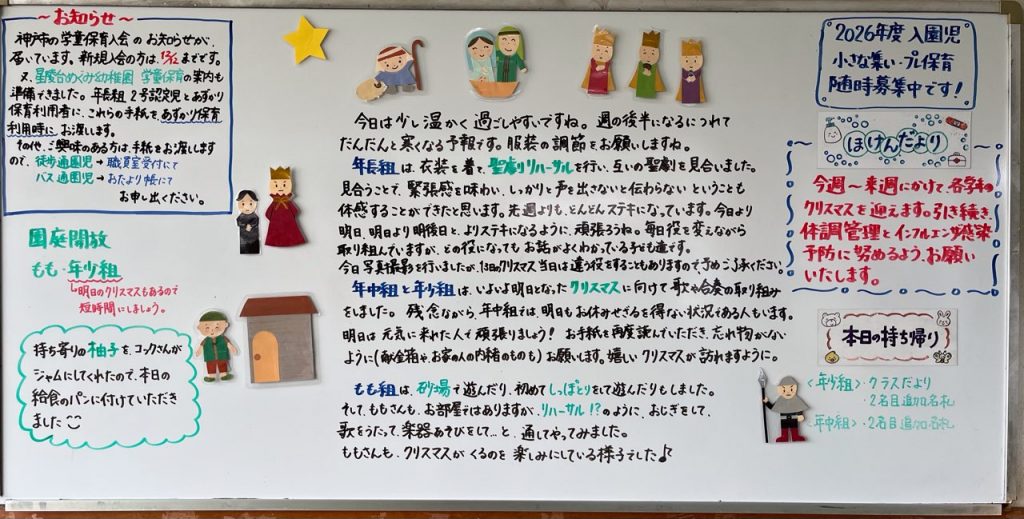 ～お知らせ～
神戸市の学童保育入会のお知らせが、
届いています。新規入会の方は、12/12までです。
又、星陵台めぐみ幼稚園 学童保育の案内も
準備できました。年長組2号認定児とあずかり
保育利用者に、これらの手紙を、あずかり保育
利用時にお渡しします。
その他、ご興味のある方は、手紙をお渡しします
ので、徒歩通園児→職員室受付にて
バス通園児→おたより帳にて
お申し出ください。
園庭開放
もも・年少組
明日のクリスマスもあるので
短時間にしましょう。
持ち寄りの柚子を、コックさんが
ジャムにしてくれたので、本日の
給食のパンに付けていただき
ました
今日は少し温かく過ごしやすいですね。週の後半になるにつれて
だんだんと寒くなる予報です。服装の調節をお願いしますね。
年長組は、衣装を着て、聖劇リハーサルを行い、互いの聖劇を見合いました。
見合うことで、緊張感を味わい、しっかりと声を出さないと伝わらないということも
体感することができたと思います。先週よりも、どんどんステキになっています。今日より
明日、明日より明後日と、よりステキになるように、頑張ろうね。毎日役を変えながら
取り組んでいますが、どの役になってもお話がよくわかっている子ども達です。
今日写真撮影を行いましたが、13日のクリスマス当日は違う役をすることもありますので、予めご了承ください。
年中組と年少組は、いよいよ明日となったクリスマスに向けて歌や合奏の取り組み
をしました。残念ながら、年中組では、明日もお休みせざるを得ない状況である人もいます。
明日は元気に来れた人で頑張りましょう！お手紙を再度読んでいただき、忘れ物がない
ように(献金箱や、お家の人の内緒のものも)お願いします。嬉しいクリスマスが訪れますように。
もも組は、砂場で遊んだり、初めてしっぽとりをして遊んだりもしました。
そして、ももさんも、お部屋ではありますが、リハーサル!?のように、おじぎをして、
歌をうたって、楽器あそびをして…と、通してやってみました。
ももさんも、クリスマスがくるのを楽しみにしている様子でした♪
2026年度 入園児
小さな集い・プレ保育
随時募集中です！
ほけんだより
今週～来週にかけて、各学年の
クリスマスを迎えます。引き続き、
体調管理とインフルエンザ感染
予防に努めるよう、お願い
いたします。
本日の持ち帰り
〈年少組〉・クラスだより
・2名目追加名札
〈年中組〉・2名目追加名札